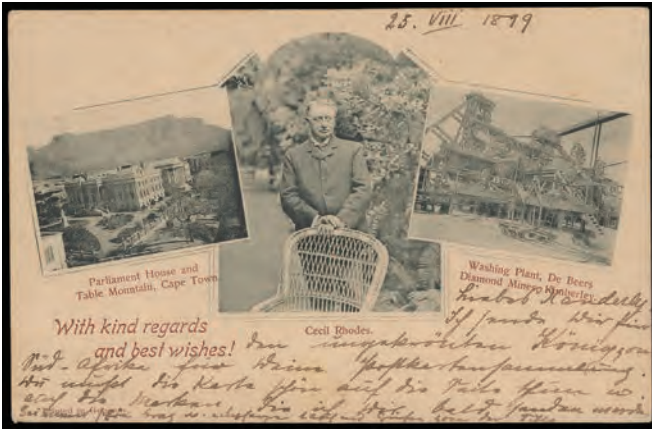 25. VIII 1899
Parliament House and
Table Mountain, Cape Town.
Cecil Rhodes.
Washing Plant, De Beers
Diamond Mines, Kimberley.
With kind regards
and best wishes!
Liebes
Ich sende Dir hier
den ungekrönten König von
Süd-Afrika für Deine Postkartensammlung.
Du musst die Karte schön auf die Seite thun u.
auch die Marken die ich Dir bald senden werde.